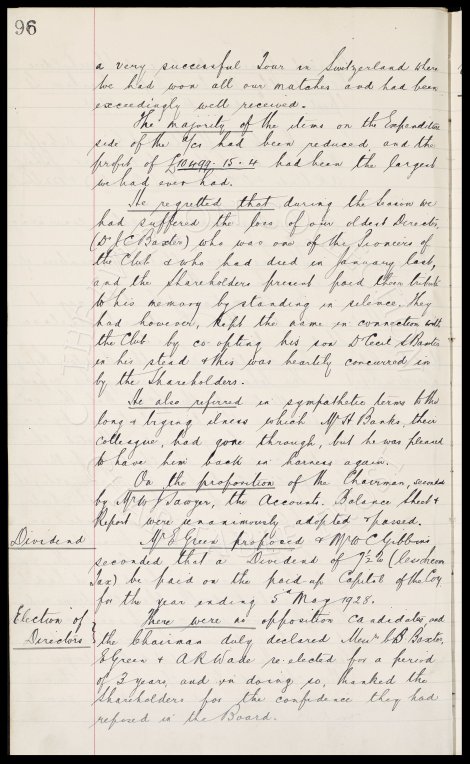 96
a very successful Tour in Switzerland where
we had won all our matches and had been
exceedingly well received.
The majority of the items on the Expenditure
side of the a/cs had been reduced, and the
profit of £10499.15.4 had been the largest
we had ever had.
He regretted that during the season we
had suffered the loss of our oldest Director
(Dr J C Baxter) who was one of the Pioneers of
the Club & who had died in January last,
and the Shareholders present paid their tribute
to his memory by standing in silence. They
had however, kept the name in connection with
the Club by co-opting his son Dr Cecil S Baxter
in his stead & this was heartily concurred in
by the Shareholders.
He also referred in sympathetic terms to the
long & trying illness which Mr H Banks, their
Colleague, had gone through, but he was pleased
to have him back in harness again.
On the proposition of the Chairman, seconded
by Mr W J Sawyer, the Accounts, Balance Sheet &
Report were unanimously adopted & passed.
Dividend Mr E Green proposed & Mr W C Gibbins
seconded that a Dividend of 7½% (less Income
Tax) be paid on the paid-up Capital of the Coy.
for the year ending 5th May 1928.
Election of There were no opposition candidates, and
Directors the Chairman duly declared Messrs C S Baxter,
E Green & A R Wade re-elected for a period
of 3 years, and in doing so, thanked the
Shareholders for the confidence they had
reposed in the Board.